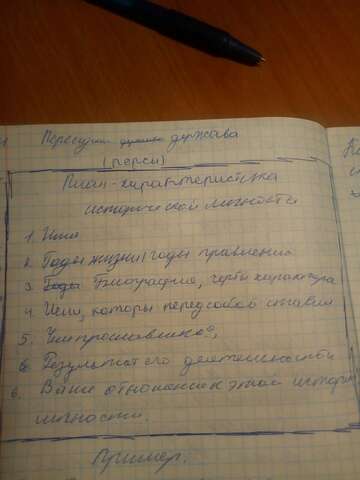 Персидская держава
(персы)
План-характеристика
исторической личности
1. Имя
2. Годы жизни/годы правления
3. Биография, черты характера
4. Цели, которы перед собой ставил
5. Чем прославился?
6. Результат его деятельности
6. Ваше отношение к этой истори
личности.
Пример.